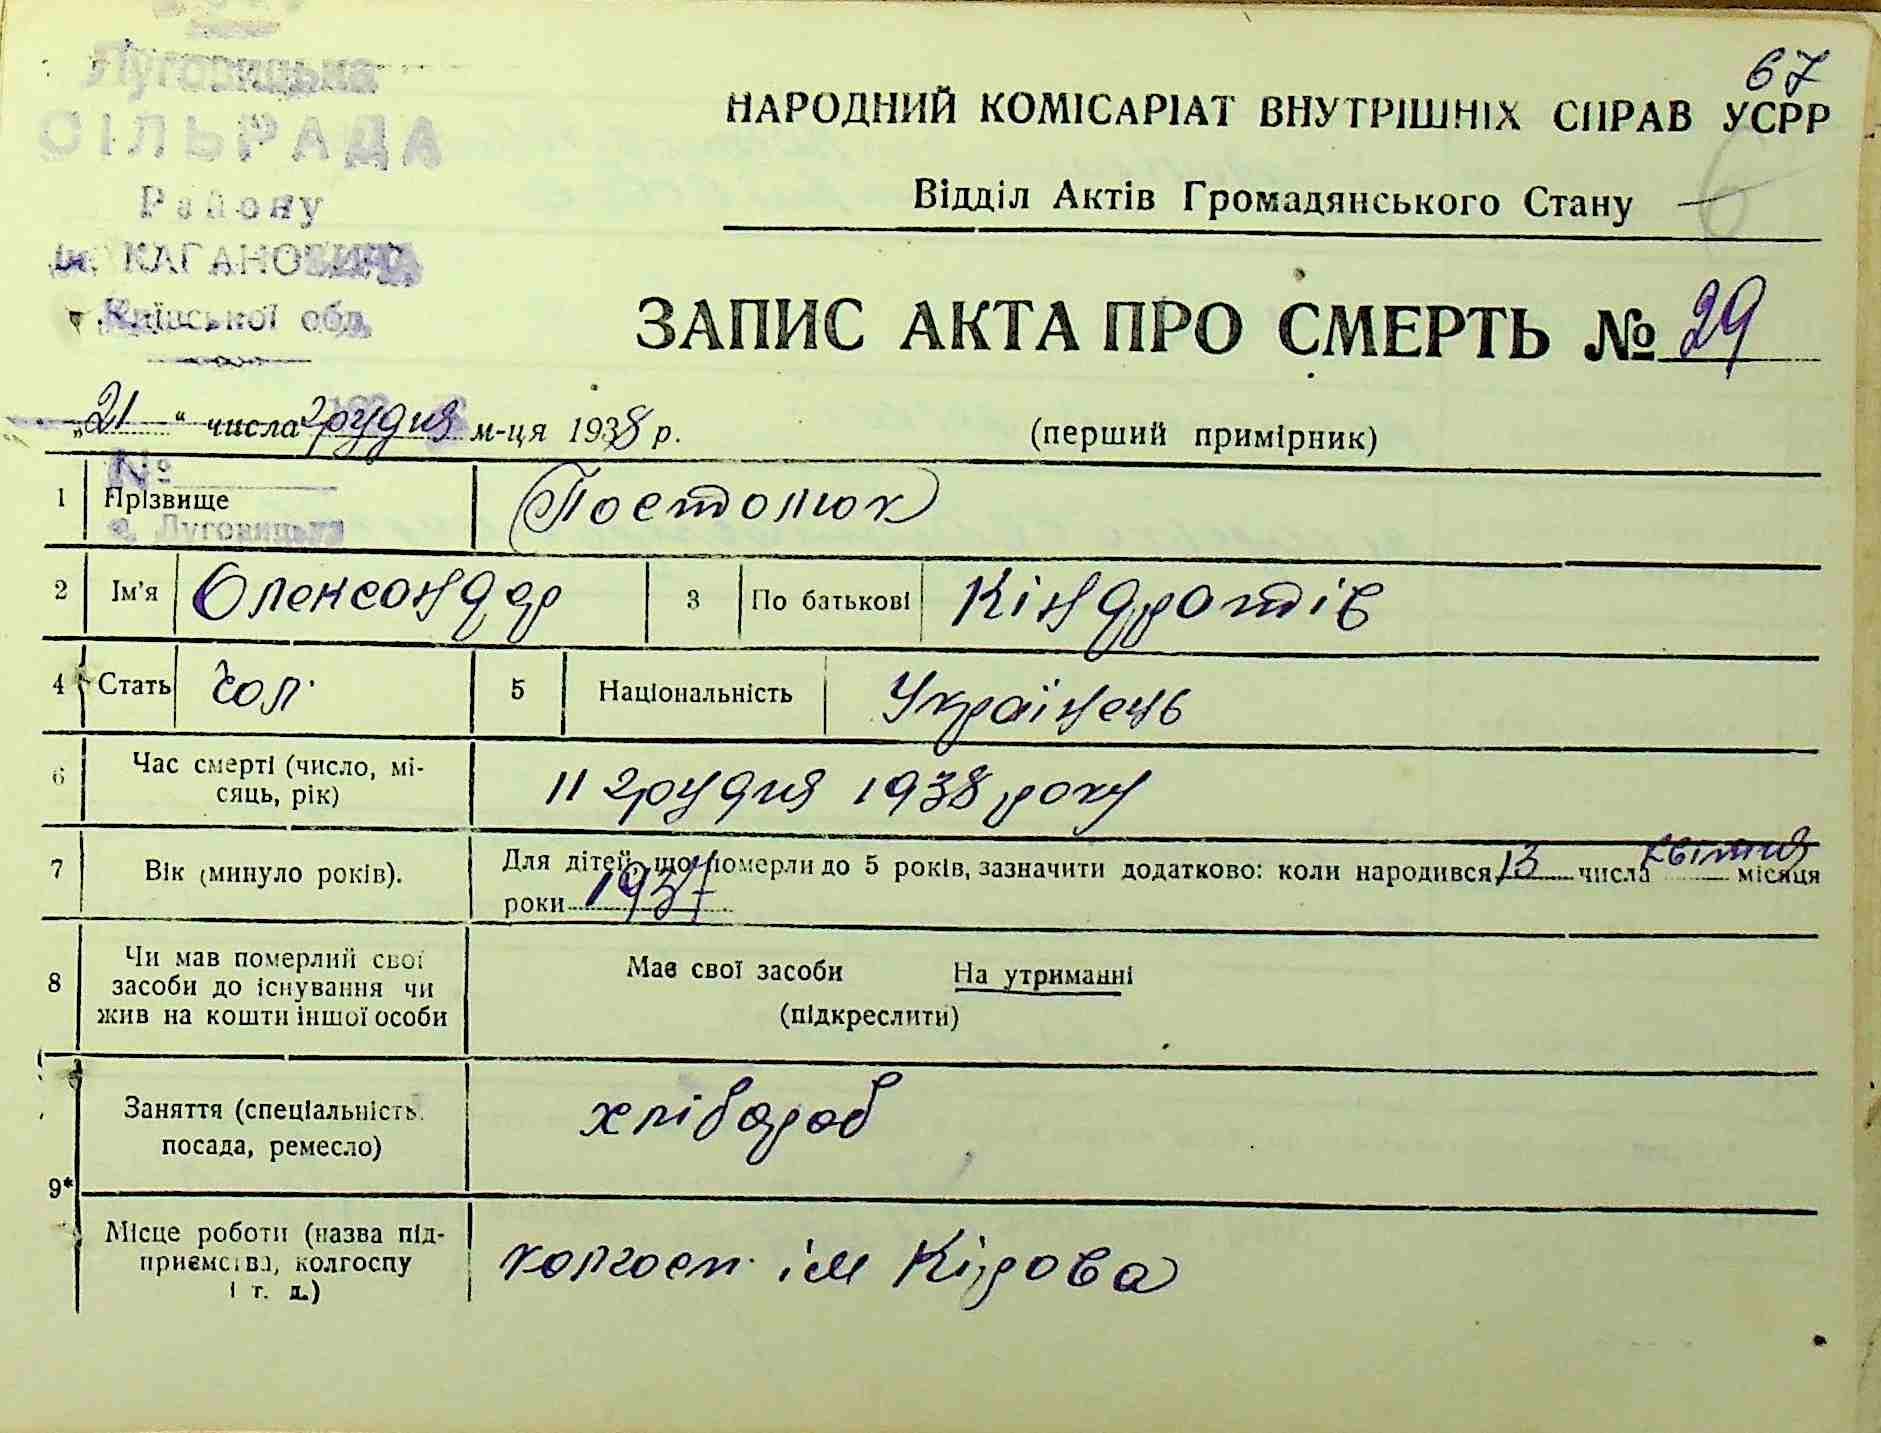 67
Луговицька
СІЛЬРАДА
Району
ім. КАГАНОВИЧА
Київської обл.
НАРОДНИЙ КОМІСАРІАТ ВНУТРІШНІХ СПРАВ УСРР
Відділ Актів Громадянського Стану
6
ЗАПИС АКТА ПРО СМЕРТЬ № 29
„21“ числа грудня м-ця 1938 р.
(перший примірник)
№
с. Луговицька
1 Прізвище Постолюк
2 Ім'я Олександер 3 По батькові Кіндратів
4 Стать чол. 5 Національність Українець
6 Час смерті (число, мі-
сяць, рік) 11 грудня 1938 року
7 Вік (минуло років). Для дітей, що померли до 5 років, зазначити додатково: коли народився 13 числа квітня місяця
роки 1937
8 Чи мав померлий свої
засоби до існування чи
жив на кошти іншої особи
Має свої засоби На утриманні
(підкреслити)
9*
Заняття (спеціальність,
посада, ремесло) хлібороб
Місце роботи (назва під-
приємства, колгоспу
і т. д.) колгосп ім Кірова